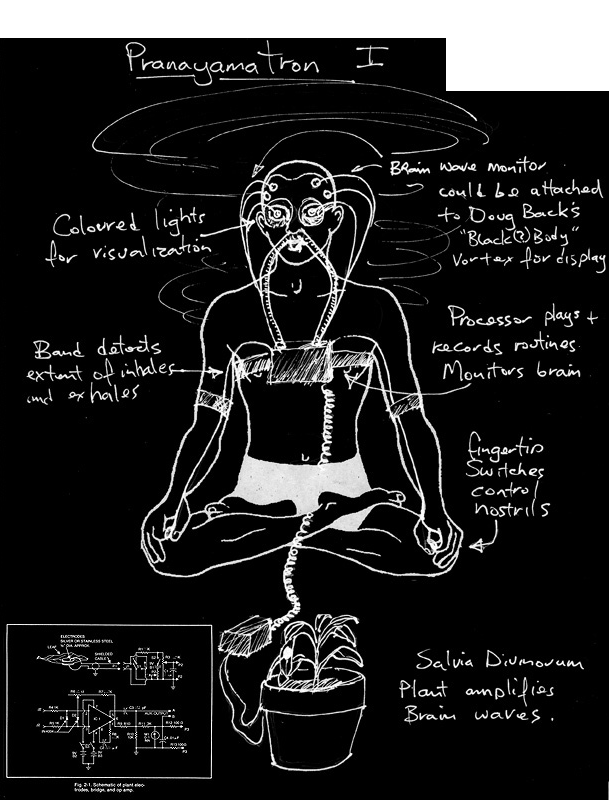 Pranayamatron I
Brain wave monitor
could be attached
to Doug Back's
"Black(?) Body"
Vortex for display
Coloured lights
for visualization
Processor plays +
records routines.
Monitors brain
Band detects
extent of inhales
and exhales
fingertip
Switches
control
nostrils
Salvia Divinorum
Plant amplifies
Brain waves.
ELECTRODES
SILVER OR STAINLESS STEEL
½" DIA. APPROX.
LEAF
SHIELDED
CABLE
Fig. 2-1. Schematic of plant elec-
trodes, bridge, and op amp.